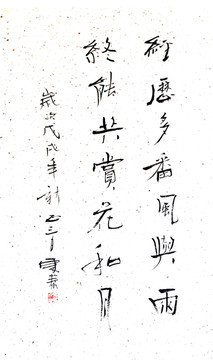 經歷多番風與雨
終能共賞花和月
歲次戊戌年新正